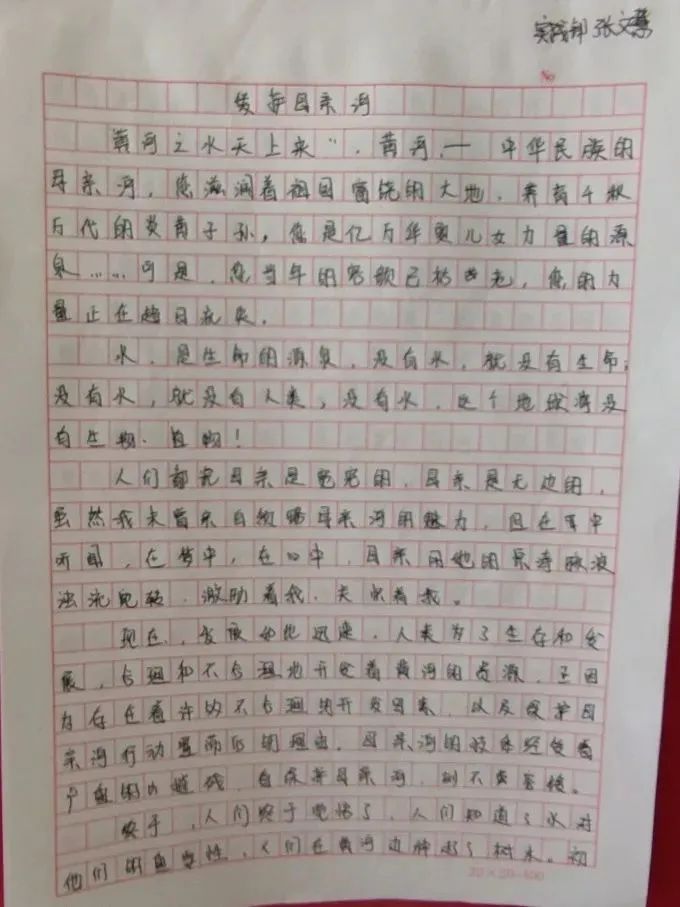 实践部 张文慧
No
爱护母亲河
黄河之水天上来”,黄河,一 中华民族的
母亲河,您滋润着祖国富饶的大地,养育千秋
万代的炎黄子孙,您是亿万华夏儿女力量的源
泉……可是,您当年的容颜已 老,您的力
量正在 日 。
水,是生命的源泉,没有水,就没有生命;
没有水,就没有人类,没有水,这个地球将没
有生物、植物!
人们都说母亲是宽容的,母亲是无边的,
虽然我未曾亲自领略母亲河的魅力,但在耳中
听闻,在梦中,在心中,母亲用她的 液
浊流 ,激励着我、 着我。
现在, 迅速,人类为了生存和发
展,合理和不合理地开发着黄河的资源,正因
为存在着许多不合理的开发因素,以及保护母
亲河行动 的理由,母亲河的 经受着
严重的 ,自保护母亲河,刻不容缓。
终于,人们终于觉悟了,人们知道了水对
他们的重要性,人们在黄河边种起了树木。初
20×20=400